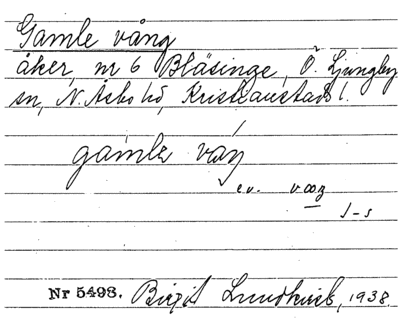 Gamle vång
åker, nr 6 Bläsinge, Ö. Ljungby
sn, N. Åsbo hd, Kristianstads l.
gamle våŋ
e.v.
Nr 5498. Birgit Lundkvist, 1938.